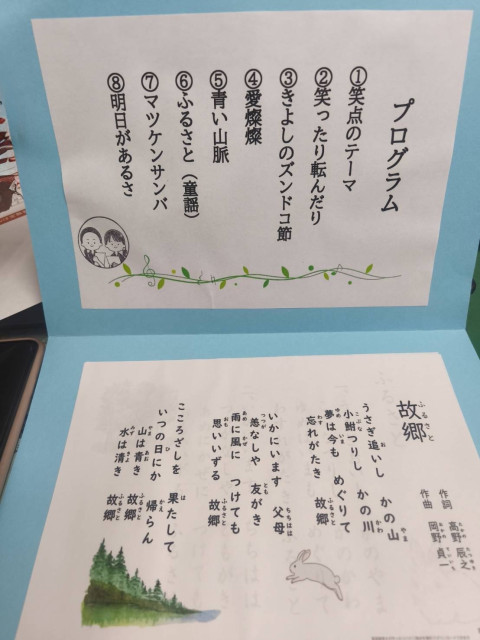 プログラム
①笑点のテーマ
②笑ったり転んだり
③きよしのズンドコ節
④愛燦燦
⑤青い山脈
⑥ふるさと（童謡）
⑦マツケンサンバ
⑧明日があるさ
故郷
ふるさと
作詞 高野 辰之
作曲 岡野 貞一
うさぎ追いし かの山
小鮒つりし かの川
夢は今も めぐりて
忘れがたき 故郷
いかにいます 父母
恙なしや 友がき
雨に風に つけても
思いいずる 故郷
こころざしを 果たして
いつの日にか 帰らん
山は青き 故郷
水は清き 故郷